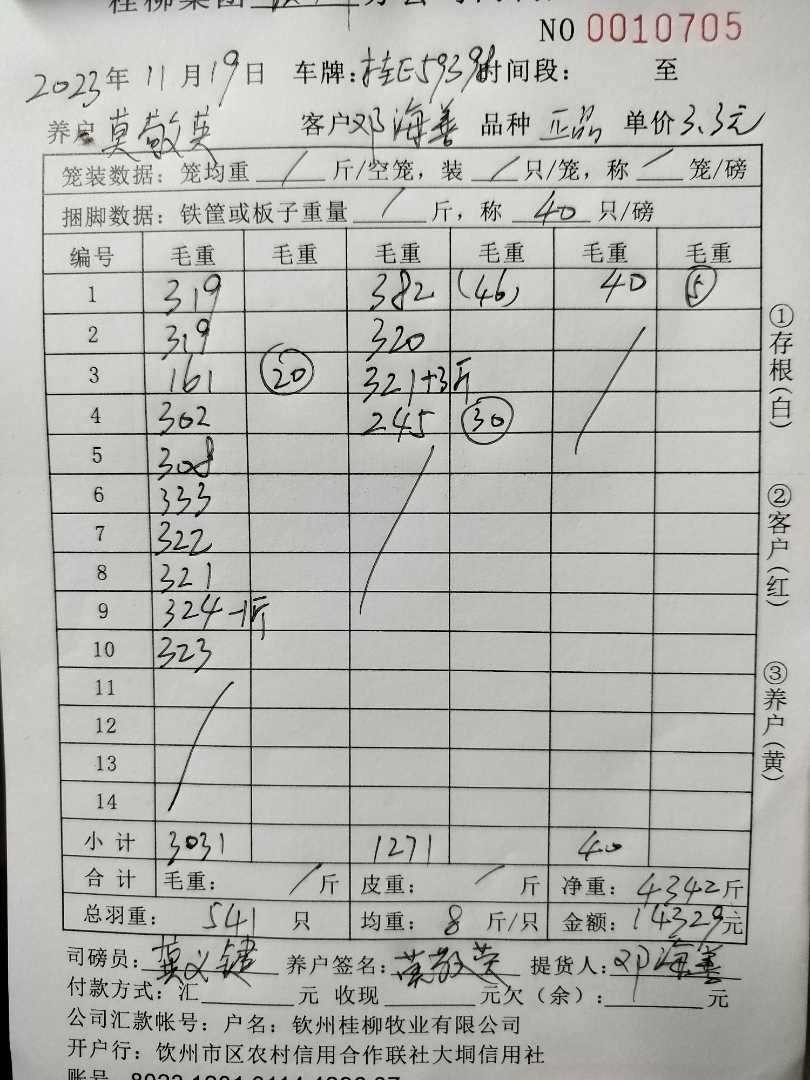 桂柳集团
NO 0010705
2023年11月19日 车牌:桂E59398 时间段: 至
养户莫敬英 客户邓海善 品种 正品 单价3.3元
笼装数据:笼均重 / 斤/空笼,装 / 只/笼,称 / 笼/磅
捆脚数据:铁筐或板子重量 / 斤,称 40 只/磅
编号 毛重 毛重 毛重 毛重 毛重 毛重
1 319 382 (46) 40 5
2 319 320
3 161 20 321+3斤
4 302 245 30
5 308
6 333
7 322
8 321
9 324-1斤
10 323
11
12
13
14
小计 3031 1271 40
合计 毛重: / 斤 皮重: / 斤 净重:4342斤
总羽重: 541 只 均重:8 斤/只 金额:14329元
司磅员:莫义键 养户签名:莫敬英 提货人:邓海善
付款方式:汇 元 收现 元欠(余): / 元
公司汇款帐号:户名:钦州桂柳牧业有限公司
开户行:钦州市区农村信用合作联社大垌信用社
账号
①存根(白)
②客户(红)
③养户(黄)